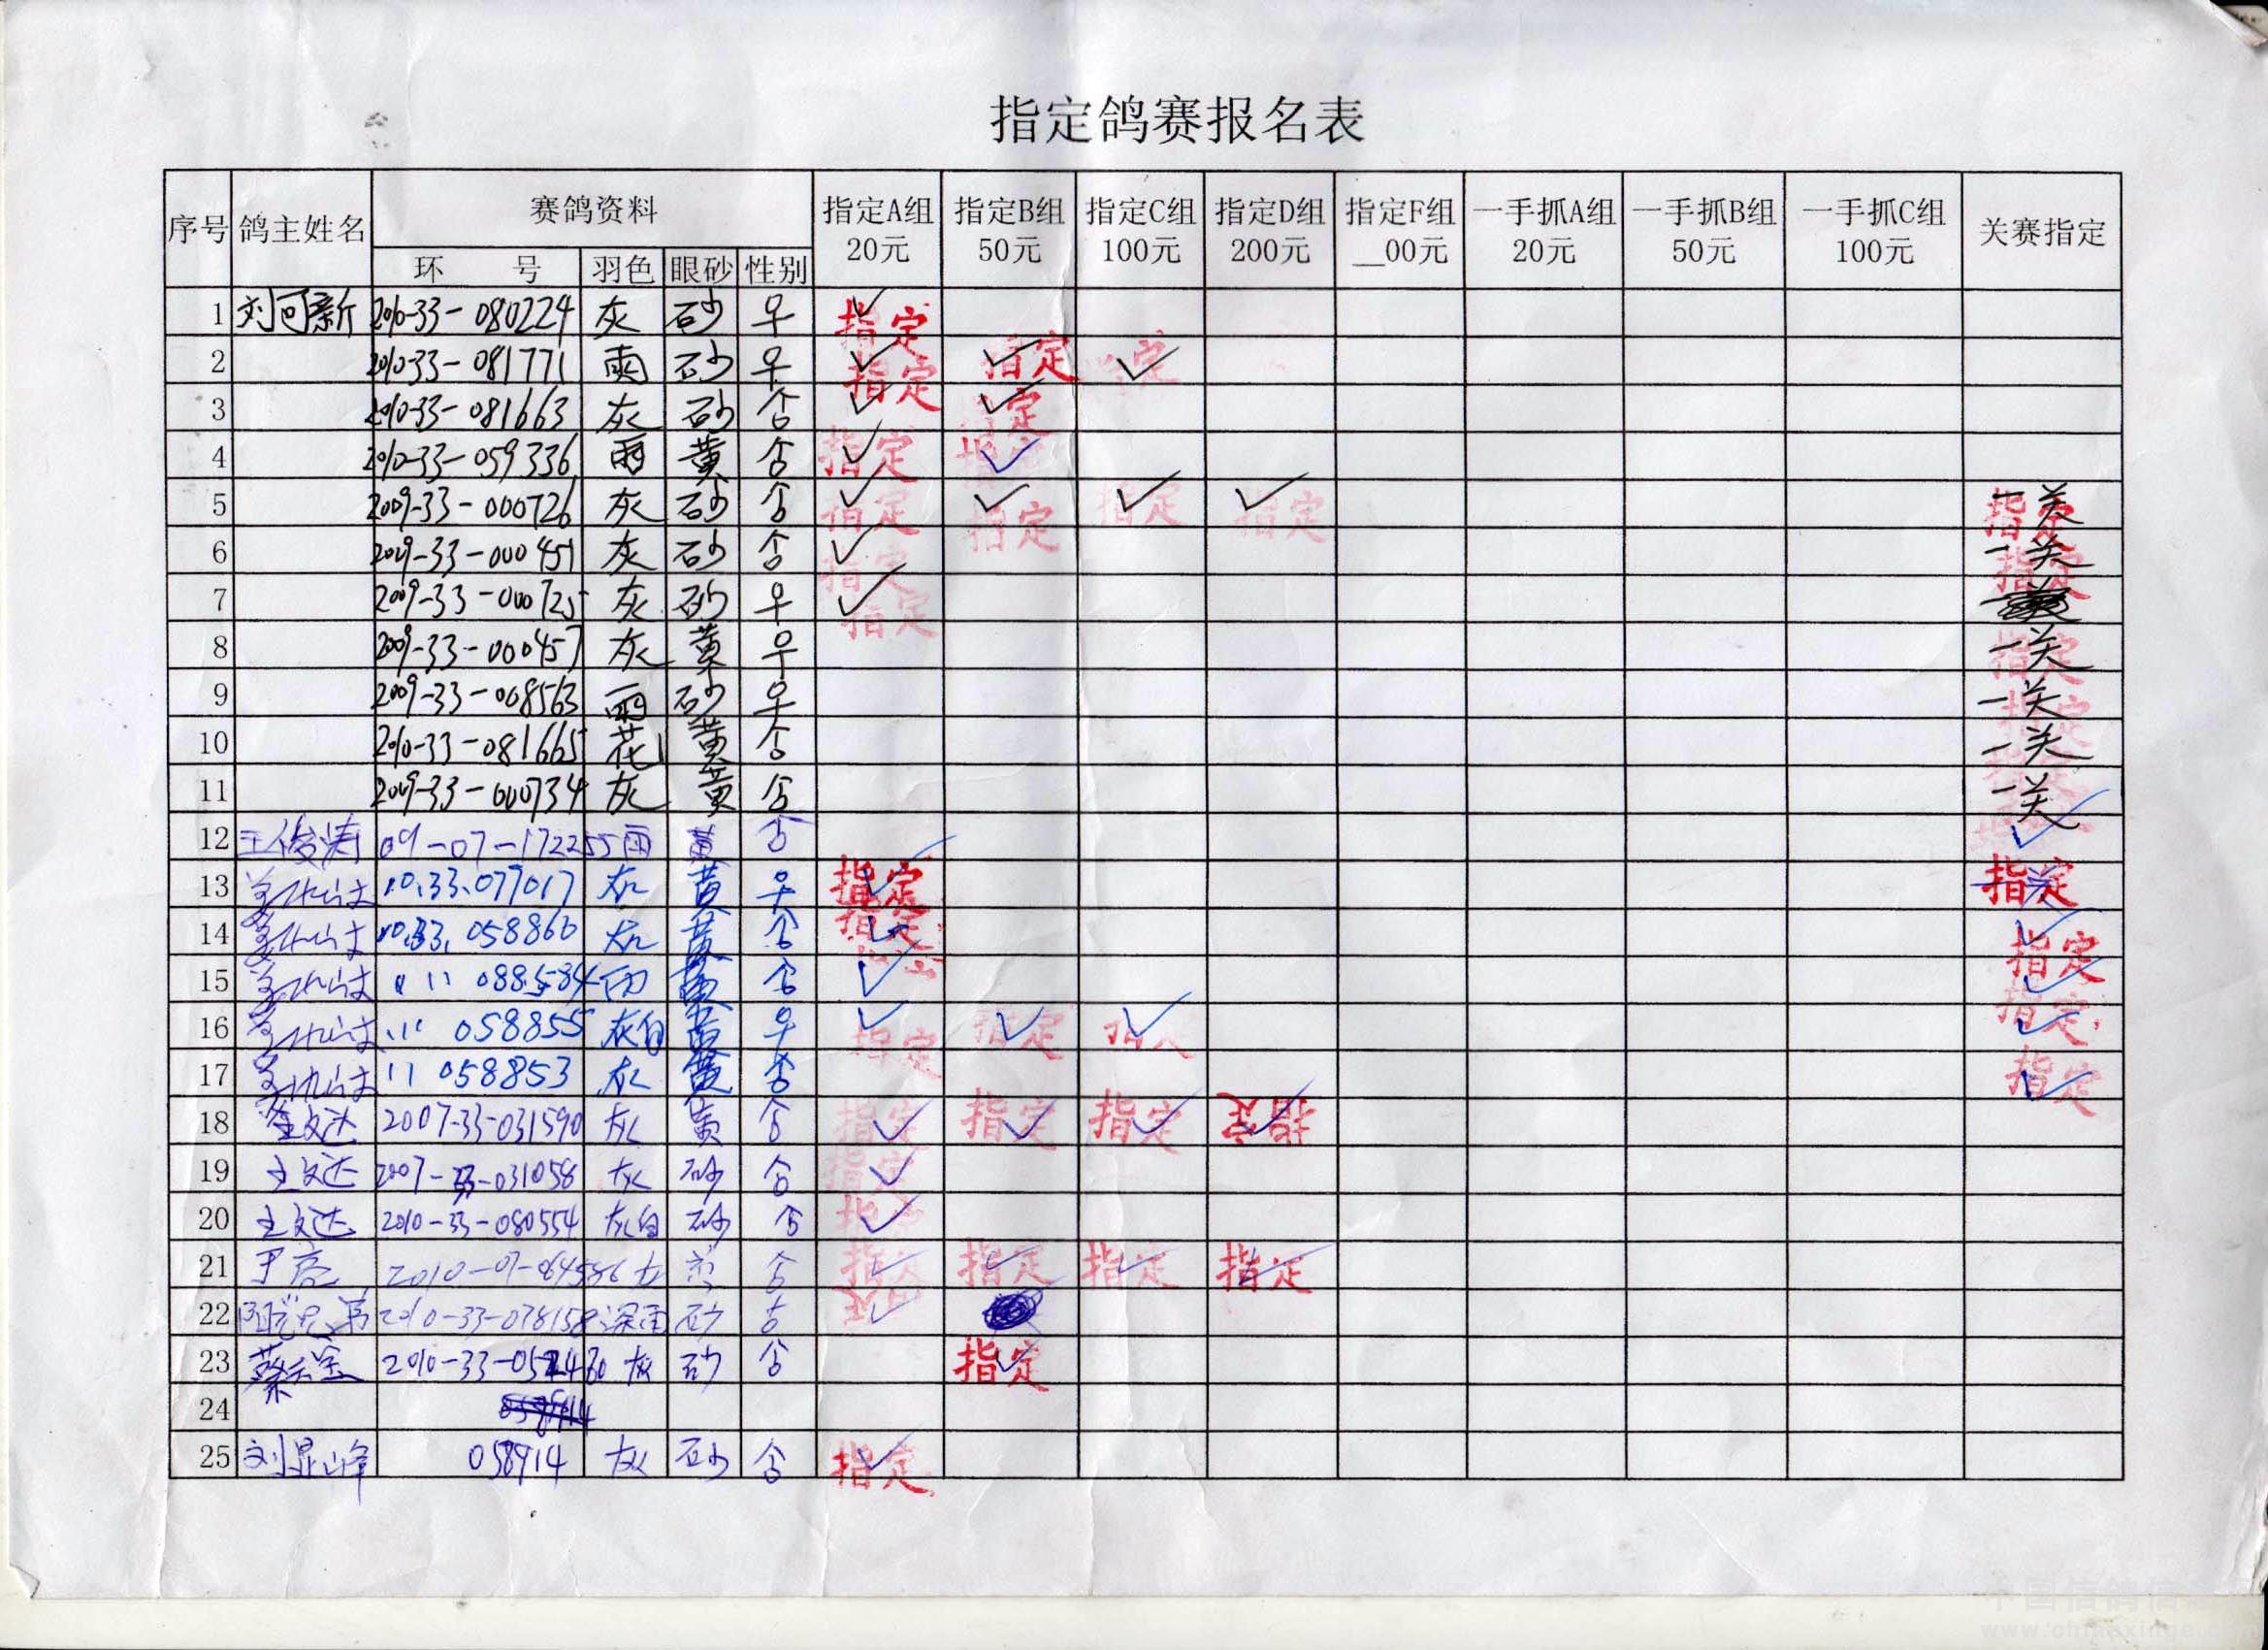 指定鸽赛报名表
序号 鸽主姓名 赛鸽资料 指定A组 20元 指定B组 50元 指定C组 100元 指定D组 200元 指定F组 __00元 一手抓A组 20元 一手抓B组 50元 一手抓C组 100元 关赛指定
环 号 羽色 眼砂 性别
1 刘可新 2010-33-080224 灰 砂 ♀ 指定 ✓
2 2010-33-081771 雨 砂 ♀ 指定 ✓ 指定 ✓ 指定 ✓
3 2010-33-081663 灰 砂 合 ✓ 指定 ✓
4 2010-33-059336 雨 黄 合 指定 ✓ ✓
5 2009-33-000726 灰 砂 合 指定 ✓ 指定 ✓ 指定 ✓ 指定 ✓ 指定 一关
6 2009-33-000451 灰 砂 合 指定 ✓ 指定 一关
7 2009-33-000725 灰 砂 ♀ 指定 ✓
8 2009-33-000457 灰 黄 ♀ 指定 一关
9 2009-33-008563 雨 砂 ♀ 指定 一关
10 2010-33-081665 花 黄 合 一关
11 2009-33-000734 灰 黄 合 一关
12 王俊涛 09-07-172255 雨 黄 合 ✓
13 10.33.077017 灰 黄 ♀ 指定 ✓ 指定
14 10.33.058860 灰 黄 合 指定 ✓ 指定 ✓
15 〃 〃 088584 雨 黄 合 ✓ 指定 ✓
16 〃 058855 灰白 ♀ 指定 ✓ 指定 ✓ 指定 ✓ ✓
17 〃 058853 灰 黄 合 指定 ✓
18 2007-33-031590 灰 黄 合 指定 ✓ 指定 ✓ 指定 ✓ 指定 ✓
19 王文达 2007-33-031058 灰 砂 合 指定 ✓
20 王文达 2010-33-080554 灰白 砂 合 ✓
21 于亮 2010-07- 合 指定 ✓ 指定 ✓ 指定 ✓ 指定 ✓
22 2010-33-078158 深雨 砂 合 ✓
23 2010-33- 灰 砂 合 指定 ✓
24
25 刘显峰 058914 灰 砂 合 指定 ✓
www.chinaxinge.com